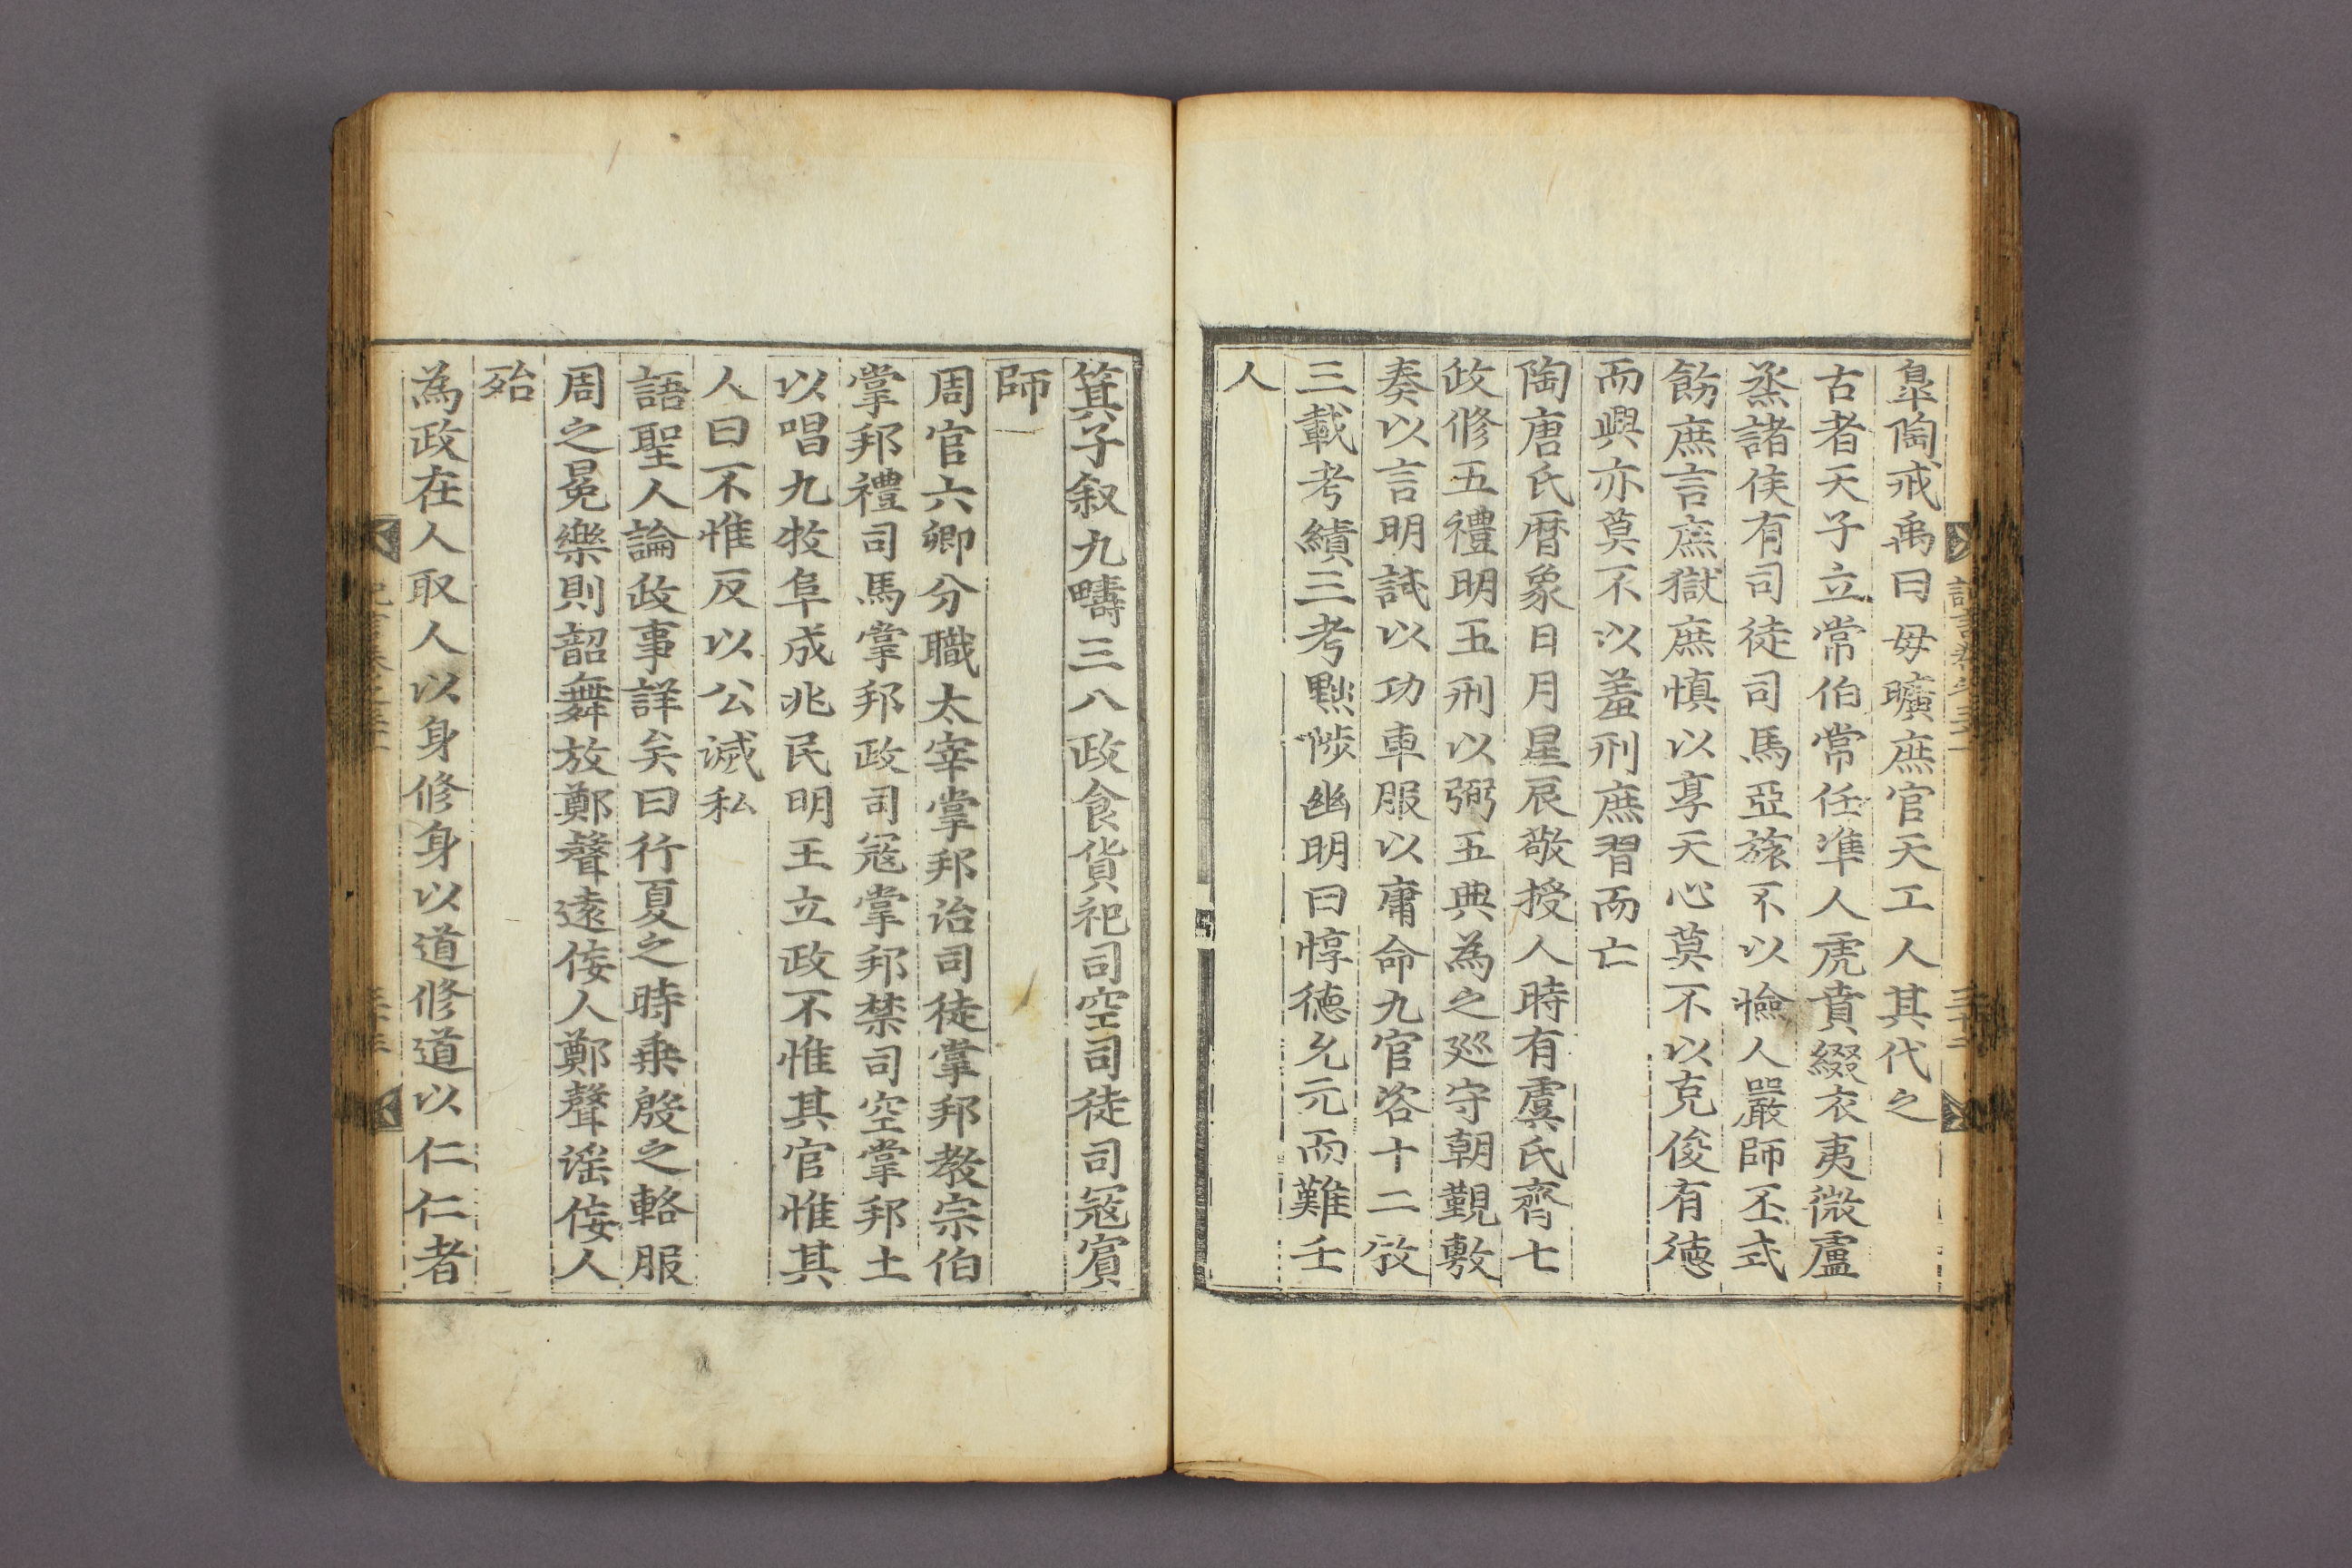 皐陶戒禹曰毋曠庶官天工人其代之
古者天子立常伯常任準人虎賁綴衣夷微盧
烝諸侯有司徒司馬亞旅不以憸人嚴師丕式
飭庶言庶獄庶慎以享天心莫不以克俊有德
而興亦莫不以羞刑庶習而亡
陶唐氏曆象日月星辰敬授人時有虞氏齊七
政修五禮明五刑以弼五典為之廵守朝覲敷
奏以言明試以功車服以庸命九官咨十二牧
三載考績三考黜陟幽明曰惇德允元而難壬
人
箕子叙九疇三八政食貨祀司空司徒司冦賓
師
周官六卿分職太宰掌邦治司徒掌邦教宗伯
掌邦禮司馬掌邦政司冦掌邦禁司空掌邦土
以唱九牧阜成兆民明王立政不惟其官惟其
人曰不惟反以公滅私
語聖人論政事詳矣曰行夏之時乗殷之輅服
周之冕樂則韶舞放鄭聲遠侫人鄭聲滛侫人
殆
為政在人取人以身修身以道修道以仁仁者